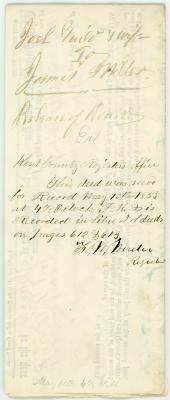 Joel Guild & wife
To
James Miller
Release of Dower
Kent County Registers Office
This deed was recd
for Record May 10th 1853
at 4½ Oclock P.M. & is
Recorded in Liber I of deeds
on pages 612 & 613
Register